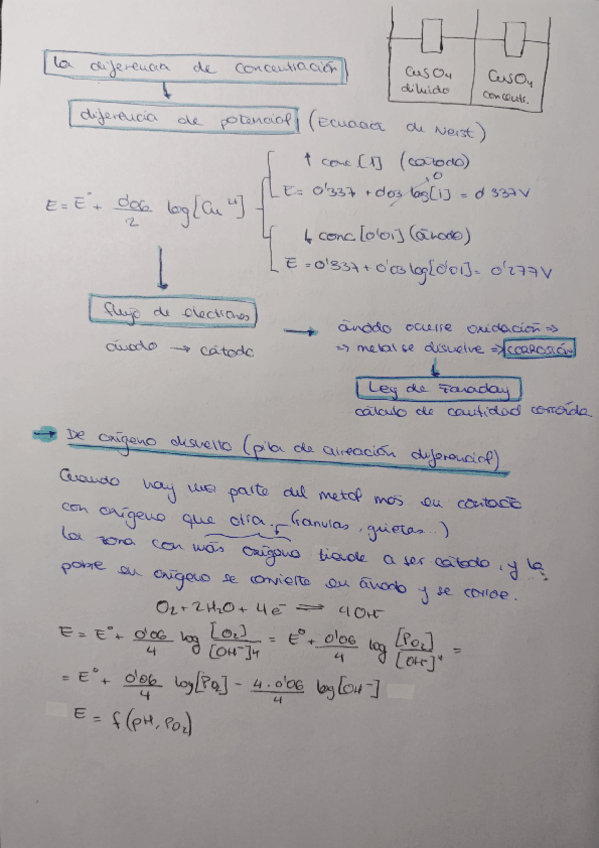 CuSO4 CuSO4
diluido concentr.
La diferencia de concentración
diferencia de potencial (Ecuación de Nerst)
↑ conc [1] (cátodo)
E = 0'337 + 0'03 log[1] = 0'337V
0
E = E° + 0'06/2 log[Cu²⁺]
↓ conc [0'01] (ánodo)
E = 0'337 + 0'03 log[0'01] = 0'277V
flujo de electrones
ánodo → cátodo
→ ánodo ocurre oxidación ⇒
⇒ metal se disuelve ⇒ CORROSIÓN
Ley de Faraday
cálculo de cantidad corroída
→ De oxígeno disuelto (pila de aireación diferencial)
Cuando hay una parte del metal más en contacto
con oxígeno que otra. (ranuras, grietas...)
La zona con más oxígeno tiende a ser cátodo, y la
pobre en oxígeno se convierte en ánodo y se corroe.
O2 + 2H2O + 4e⁻ ⇌ 4OH⁻
E = E° + 0'06/4 log [O2]/[OH⁻]⁴ = E° + 0'06/4 log [PO2]/[OH⁻]⁴ =
= E° + 0'06/4 log[PO2] - 4·0'06/4 log[OH⁻]
E = f(pH, PO2)